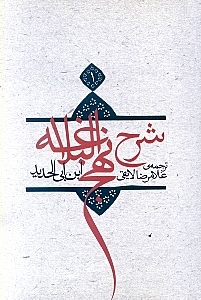 ۱
شرح
نهج البلاغه
ابن ابی الحدید
ترجمه‌ی
غلامرضا لایقی